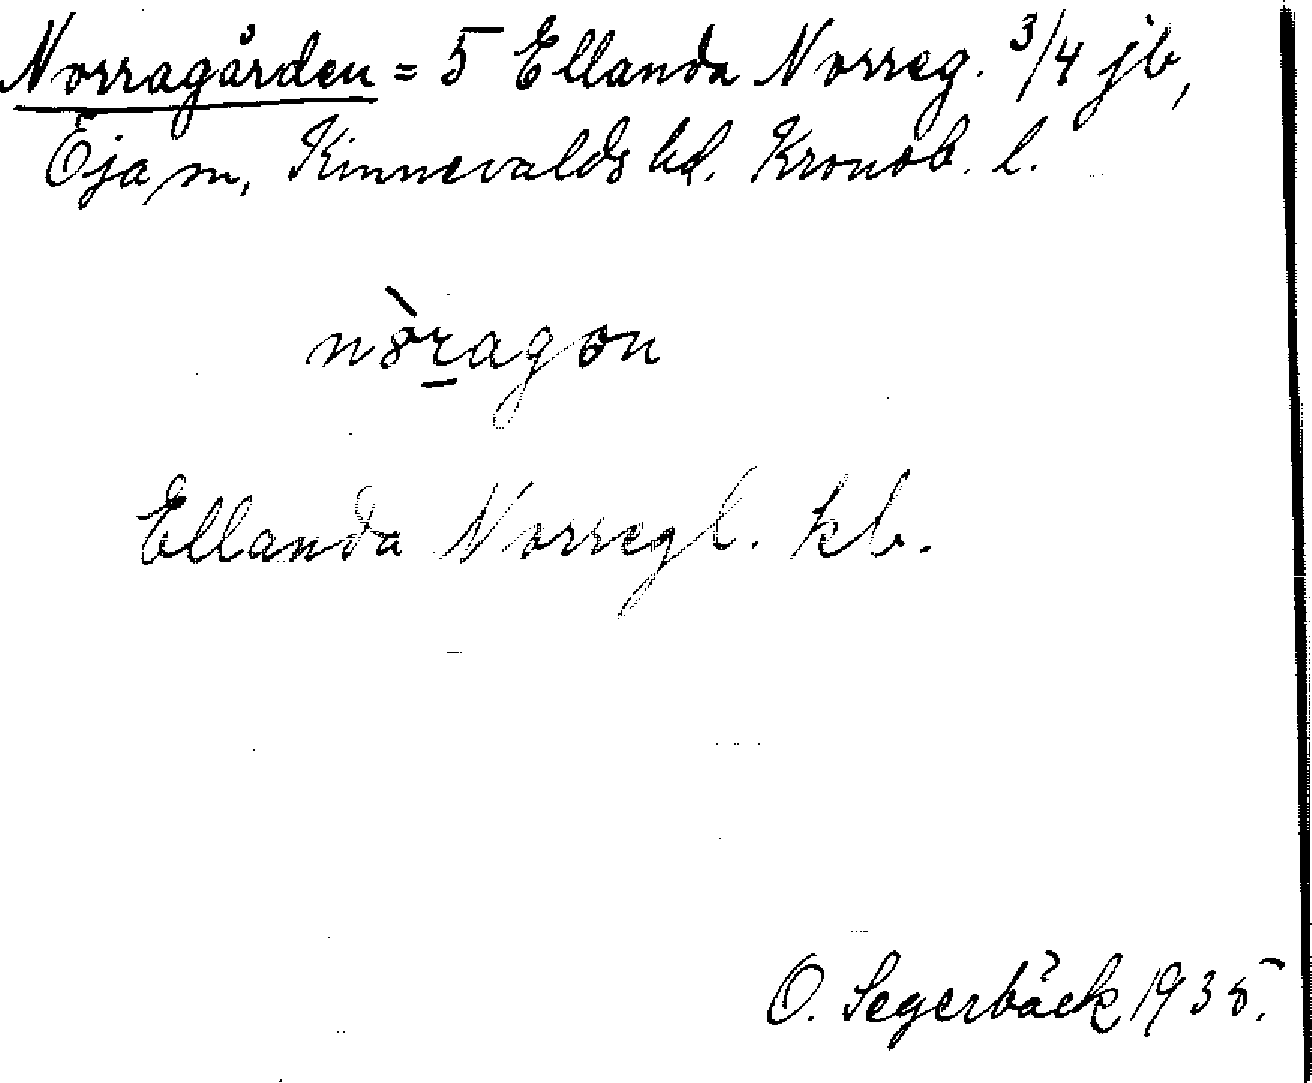 Norragården = 5 Ellanda Norreg. 3/4 jb,
Öja sn, Kinnevalds hd. Kronob. l.
nòragon
Ellanda Norregl. kb.
O. Segerbäck 1935.